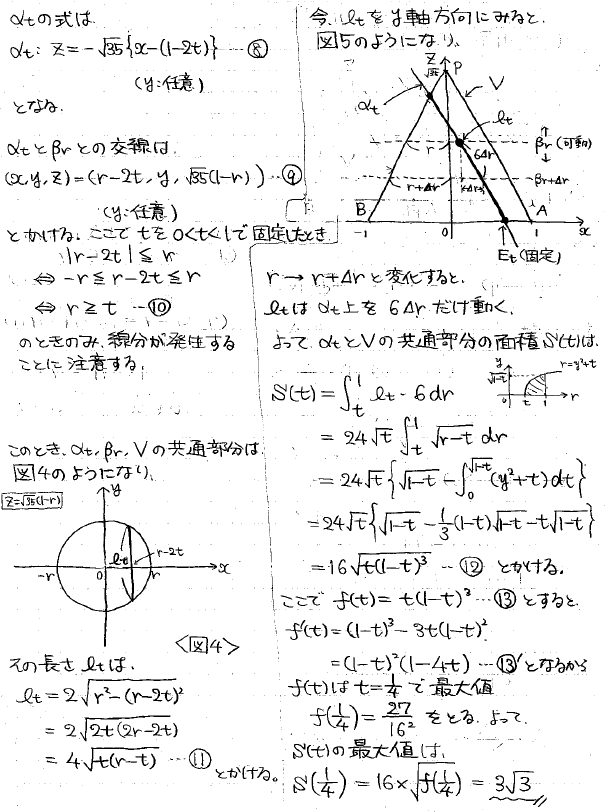 αtの式は
αt: Z=-√35{x-(1-2t)} …⑧
(y:任意)
となる.
αtとβrとの交線は
(x, y, z)=(r-2t, y, √35(1-r)) …⑨
(y:任意)
とかける. ここでtを0<t<1で固定したとき
|r-2t|≦r
⇔ -r≦r-2t≦r
⇔ r≧t …⑩
のときのみ, 線分が発生する
ことに注意する.
このとき, αt, βr, Vの共通部分は
図4のようになり,
Z=√35(1-r)
y
lt
r-2t
-r 0 r x
<図4>
その長さ ltは.
lt=2√r²-(r-2t)²
=2√2t(2r-2t)
=4√t(r-t) …⑪
とかける。
今, ltをy軸方向にみると,
図5のようになり,
Z
√35 P
V
αt
lt
r
6Δr
βr(可動)
r+Δr
βr+Δr
B A
-1 0 1 x
Et(固定)
r→r+Δrと変化すると,
ltはαt上を 6Δrだけ動く.
よって αtとVの共通部分の面積S(t)は.
y
√1-t
r=y²+t
0 t 1 r
S(t)=∫t1 lt・6dr
=24√t∫t1 √r-t dr
=24√t{√1-t-∫0√1-t(y²+t)dt}
=24√t{√1-t-1/3(1-t)√1-t-t√1-t}
=16√t(1-t)³ …⑫ とかける.
ここで f(t)=t(1-t)³…⑬とすると
f'(t)=(1-t)³-3t(1-t)²
=(1-t)²(1-4t) …⑬'となるから
f(t)はt=1/4で最大値
f(1/4)=27/16²をとる. よって.
S(t)の最大値は,
S(1/4)=16×√f(1/4)=3√3